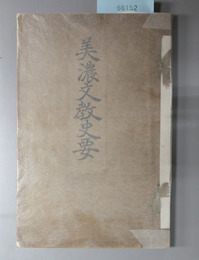 66152
美濃文教史要